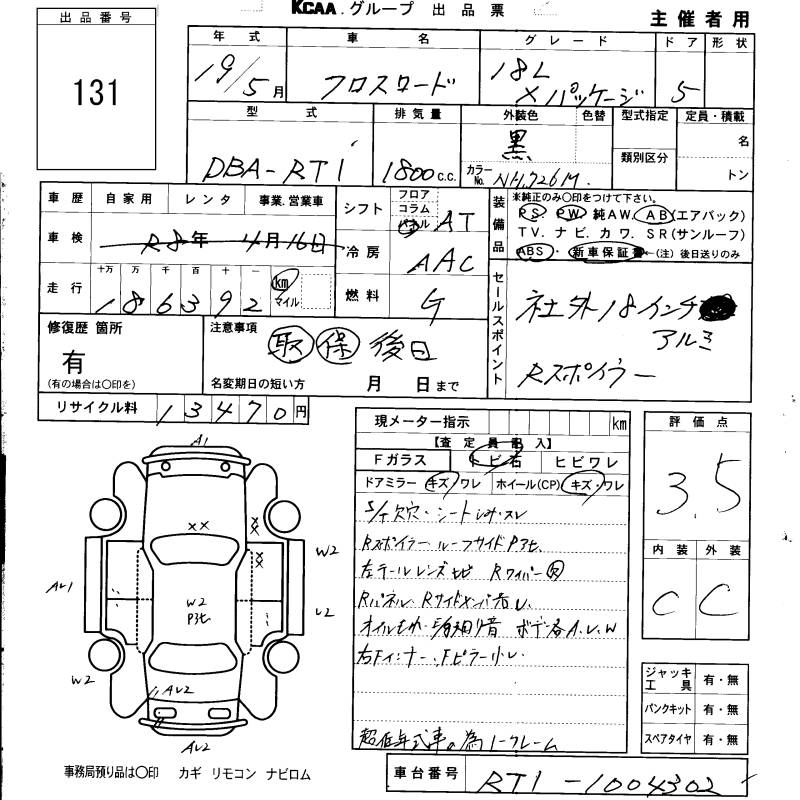 KCAA グループ 出品票
主催者用
出品番号
131
年式 車名 グレード ドア 形状
19/5月 クロスロード 18L Xパッケージ 5
型式 排気量 外装色 色替 型式指定 定員・積載
DBA-RT1 1800c.c. 黒 類別区分 名
カラーNo. NH726M トン
車歴 自家用 レンタ 事業.営業車
車検 R8年 4月16日
走行 十万 万 千 百 十 一
186392 km マイル
シフト フロア コラム パネル AT
冷房 AAC
燃料 G
装備品 ※純正のみ〇印をつけて下さい。
PS PW 純AW. AB(エアバック)
TV. ナビ. カワ. SR(サンルーフ)
ABS・新車保証書←(注)後日送りのみ
セールスポイント
社外18インチ
アルミ
Rスポイラー
修復歴 箇所
有
(有の場合は〇印を)
注意事項
取 保 後日
名変期日の短い方 月 日まで
リサイクル料 13470円
現メーター指示 km
【査定員記入】
Fガラス トビ石 ヒビワレ
ドアミラー キズ/ワレ ホイール(CP) キズ・ワレ
Rスポイラー ルーフサイド Pヲヒ
左テールレンズヒビ Rワイパー欠
右Fインナー、Fピラー小U
超低年式車の為ノークレーム
評価点
3.5
内装 外装
C C
ジャッキ工具 有・無
パンクキット 有・無
スペアタイヤ 有・無
A1
XX
XX
XX
W2
AU1
U2
W2
Pヲヒ
W2
AU2
AU2
事務局預り品は〇印 カギ リモコン ナビロム
車台番号 RT1-1004302